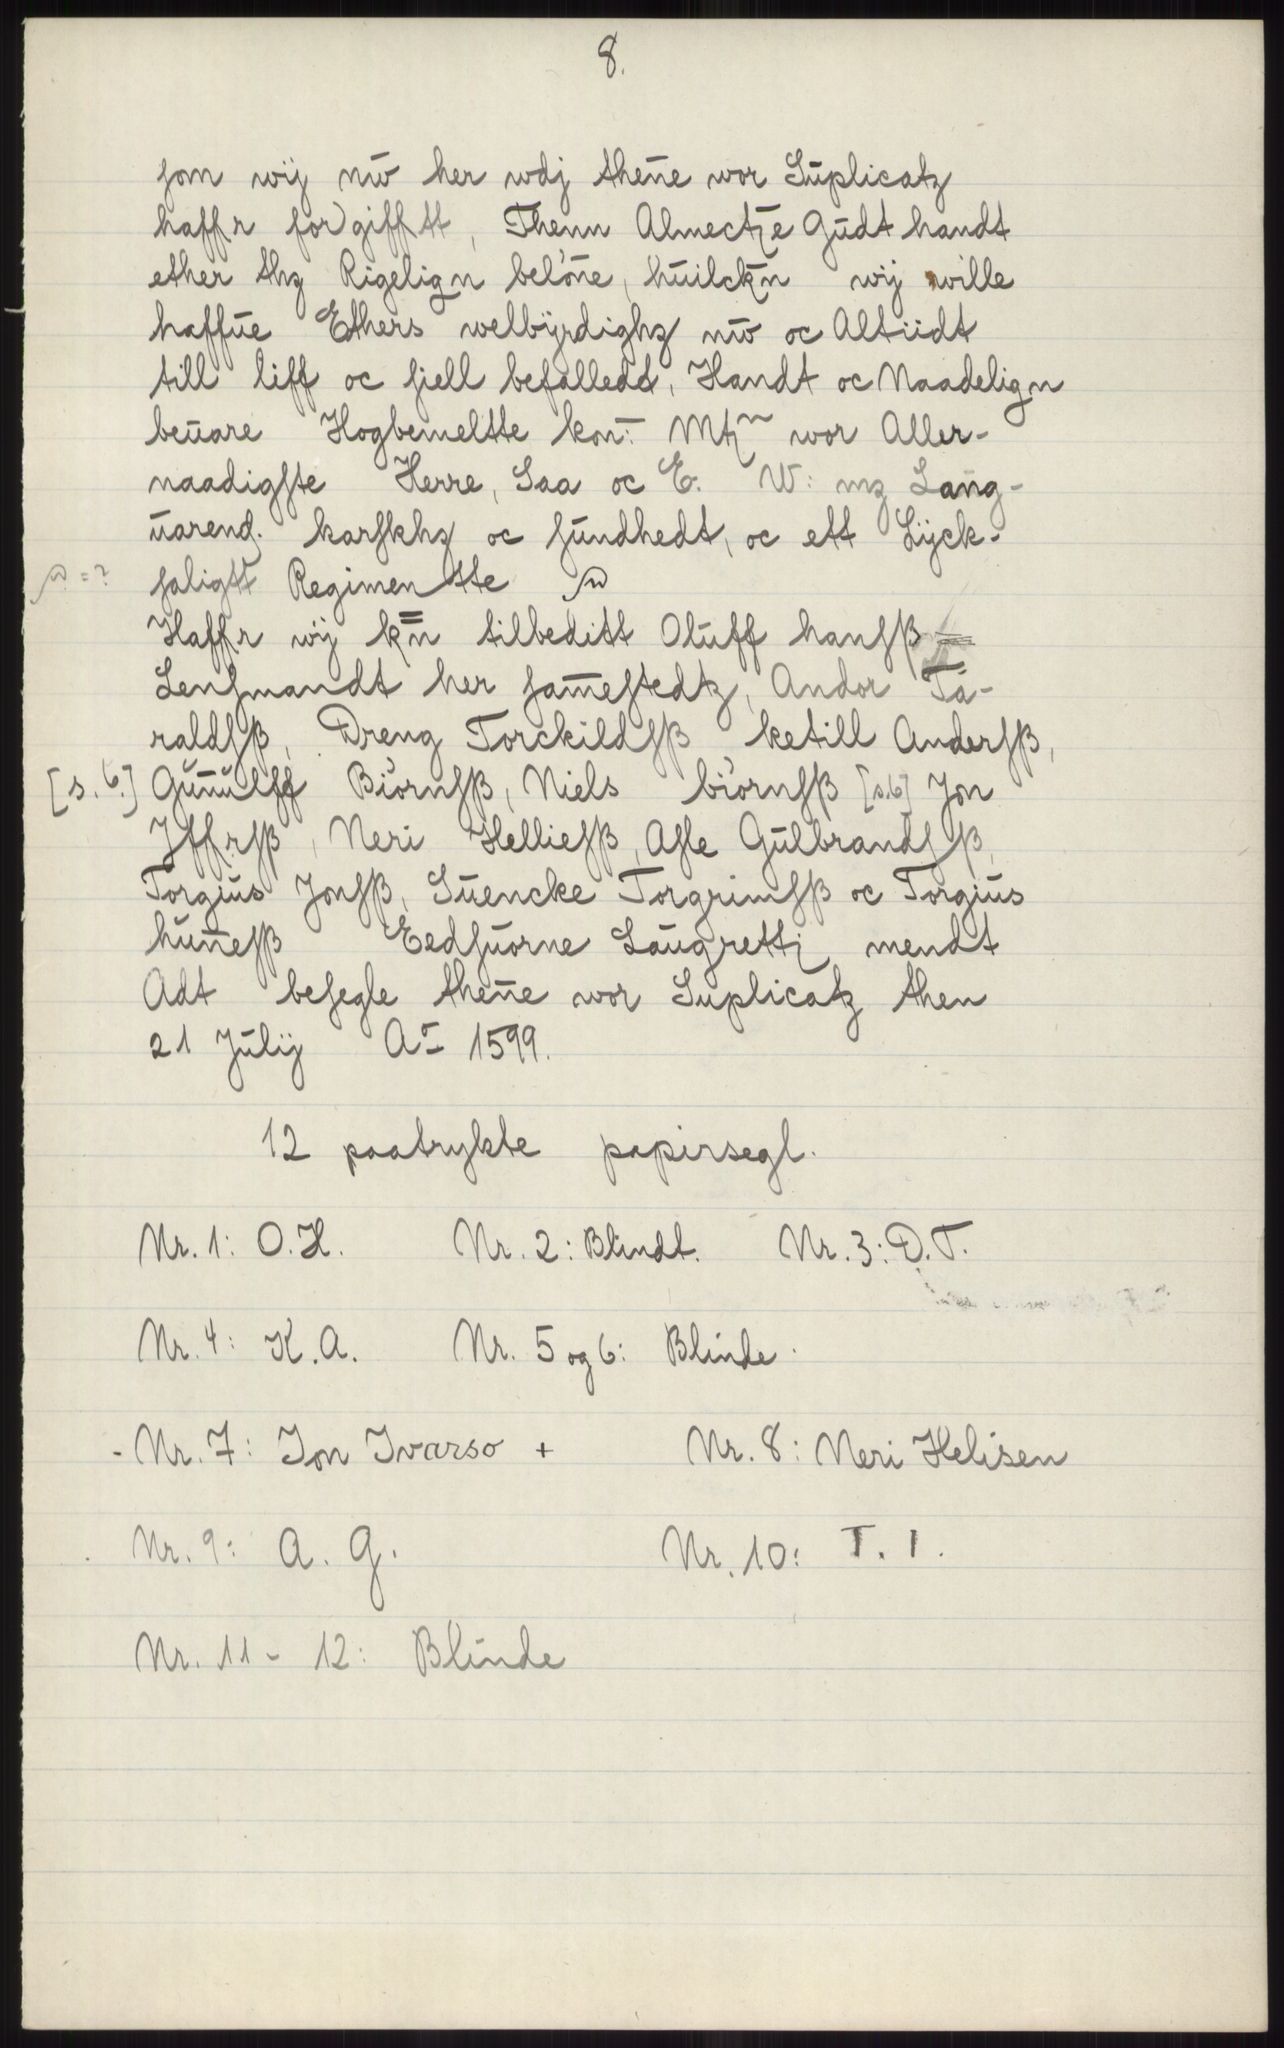 8.
som wij nw her wdj thene wor Suplicatz
haffr forgifftt, Thenn Almectze Gudt handt
ether thz Rigelign belöne, huilckn wij wille
haffue Ethers welbyrdighz nw oc Altiidt
till liff oc siell befalledt, Handt oc Naadelign
beuare Hogbemeltte kon: Mtz wor Aller-
naadigste Herre, Saa oc E. W: mz Lang-
uarend. karskhz oc sundhedt, oc ett Lyck-
= ? saligtt Regimentte
Haffr wij kn tilbeditt Oluff hansß
Lensmandt her samestedtz, Andor Ta-
raldsß, Dreng Torckildsß ketill Andersß,
[s. 6.] Gunulff Biörnsß, Niels biörnsß [s.6] Jon
Jffrsß, Neri Helliesß, Asle Gulbrandsß,
Torgius Jonsß, Suencke Torgrimsß oc Torgius
hunesß Eedsuorne Laugrettj mendt
Adt besegle thene wor Suplicatz then
21 Julij Ao 1599.
12 paatrykte papirsegl.
Nr. 1: O.H. Nr. 2: Blindt. Nr. 3: D.T.
Nr. 4: K.A. Nr. 5 og 6: Blinde.
- Nr. 7: Jon Ivarso + Nr. 8: Neri Helisen
Nr. 9: A. G. Nr. 10: T. I.
Nr. 11 - 12: Blinde